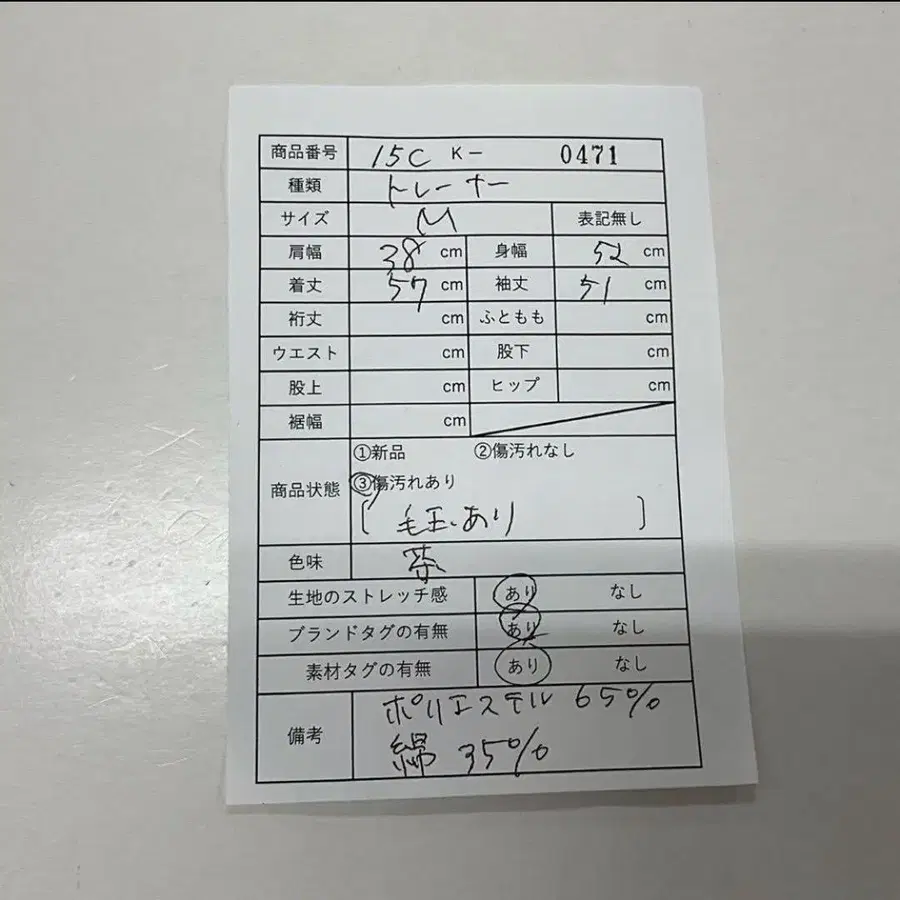 商品番号 15C K- 0471
種類 トレーナー
サイズ M 表記無し
肩幅 38 cm 身幅 52 cm
着丈 57 cm 袖丈 51 cm
裄丈 cm ふともも cm
ウエスト cm 股下 cm
股上 cm ヒップ cm
裾幅 cm
①新品 ②傷汚れなし
③傷汚れあり
商品状態
[ 毛玉あり ]
色味 茶
生地のストレッチ感 あり なし
ブランドタグの有無 あり なし
素材タグの有無 あり なし
ポリエステル 65%
備考
綿 35%